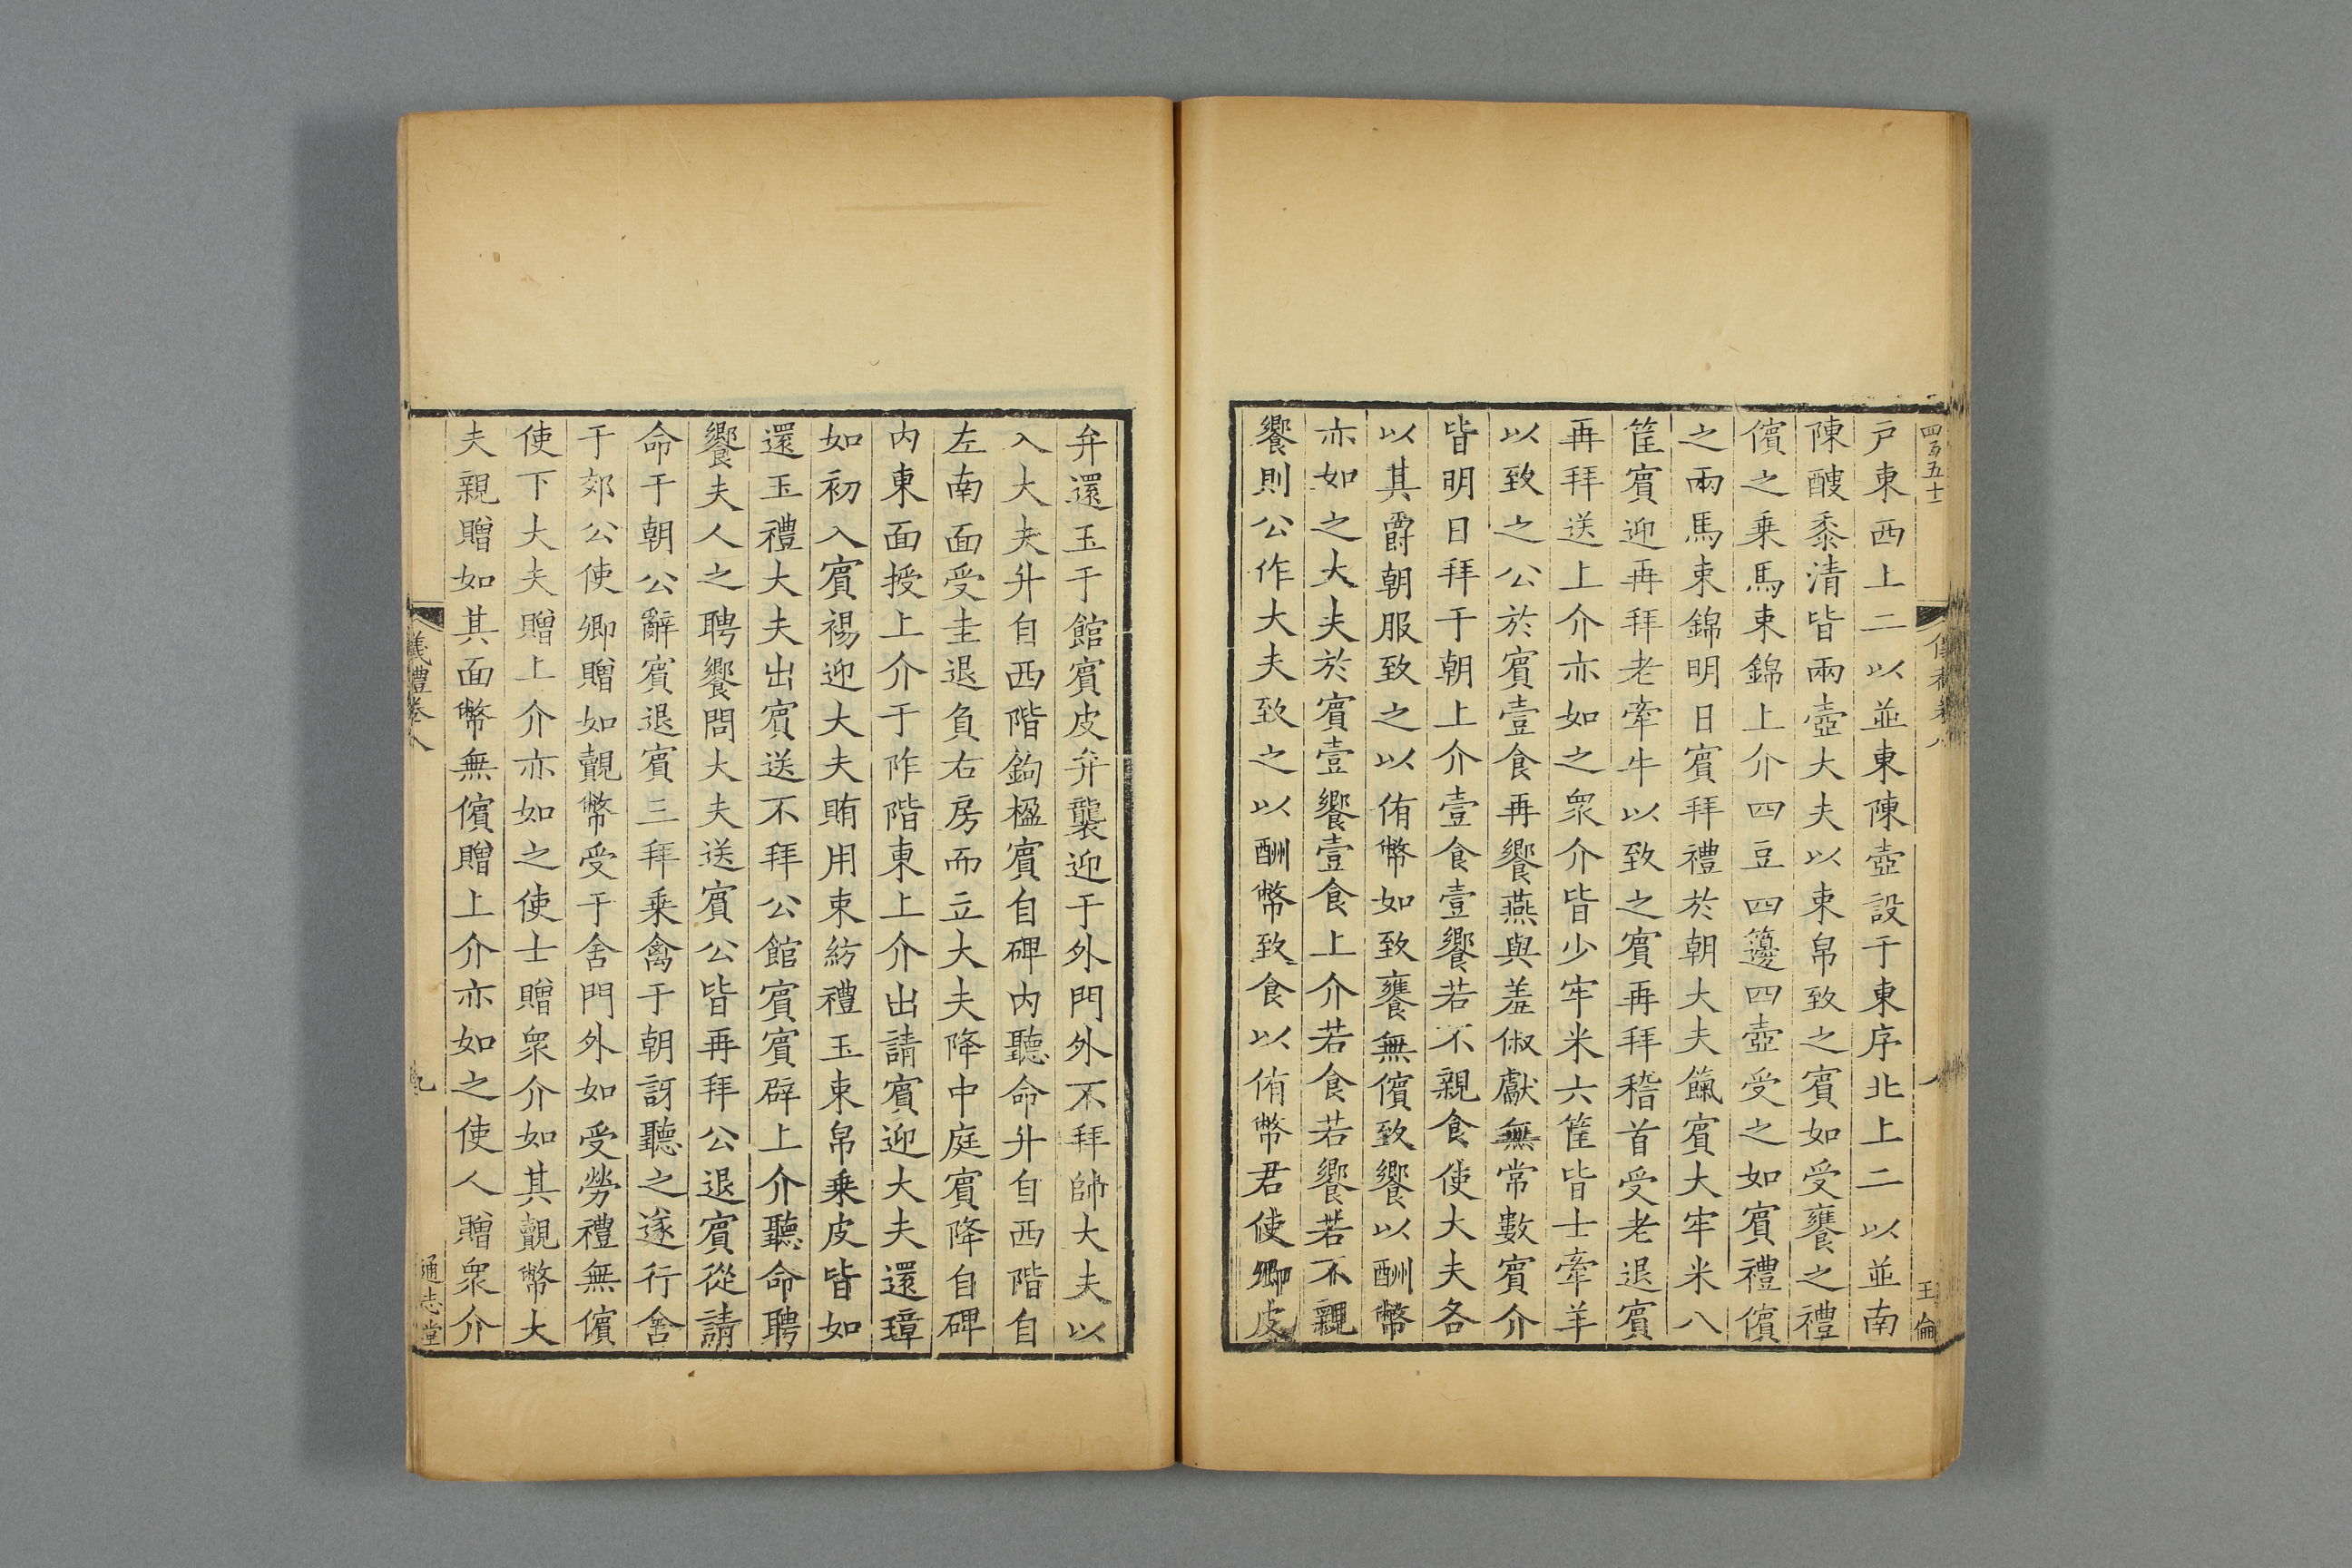 四百五十二
王倫
戸東西上二以並東陳壺設于東序北上二以並南
陳醙黍清皆兩壺大夫以束帛致之賓如受饔之禮
儐之乗馬束錦上介四豆四籩四壺受之如賓禮儐
之兩馬束錦明日賓拜禮於朝大夫餼賓大牢米八
筐賓迎再拜老牽牛以致之賓再拜稽首受老退賓
再拜送上介亦如之衆介皆少牢米六筐皆士牽羊
以致之公於賓壹食再饗燕與羞俶獻無常數賓介
皆明日拜于朝上介壹食壹饗若不親食使大夫各
以其爵朝服致之以侑幣如致饔無儐致饗以酬幣
亦如之大夫於賓壹饗壹食上介若食若饗若不親
饗則公作大夫致之以酬幣致食以侑幣君使卿皮
弁還玉于館賓皮弁襲迎于外門外不拜帥大夫以
入大夫升自西階鉤楹賓自碑内聽命升自西階自
左南面受圭退負右房而立大夫降中庭賓降自碑
内東面授上介于阼階東上介出請賓迎大夫還璋
如初入賓裼迎大夫賄用束紡禮玉束帛乗皮皆如
還玉禮大夫出賓送不拜公館賓賓辟上介聽命聘
饗夫人之聘饗問大夫送賓公皆再拜公退賓從請
命于朝公辭賓退賓三拜乗禽于朝訝聽之遂行舍
于郊公使卿贈如覿幣受于舍門外如受勞禮無儐
使下大夫贈上介亦如之使士贈衆介如其覿幣大
夫親贈如其面幣無儐贈上介亦如之使人贈衆介
儀禮卷八
九
通志堂